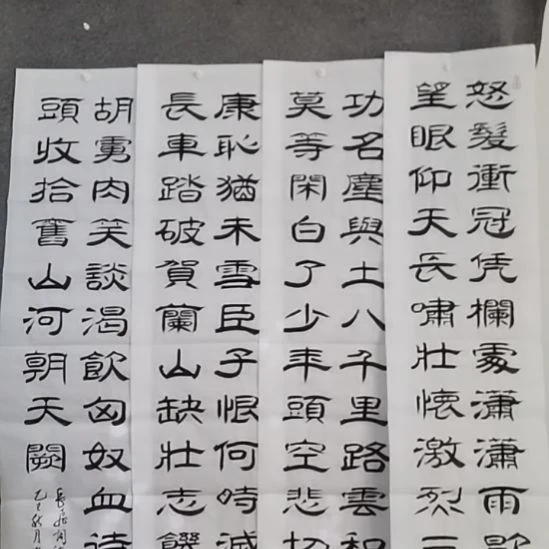 怒髮衝冠凭欄處瀟瀟雨歇
望眼仰天長嘯壯懷激烈三
功名塵與土八千里路雲和
莫等閑白了少年頭空悲切
康恥猶未雪臣子恨何時滅
長車踏破賀蘭山缺壯志饑
胡虜肉笑談渴飲匈奴血待
頭收拾舊山河朝天闕